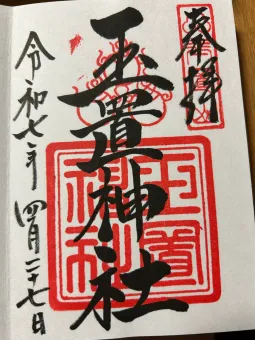 奉拝
玉置神社
玉置神社
令和七年四月二十七日